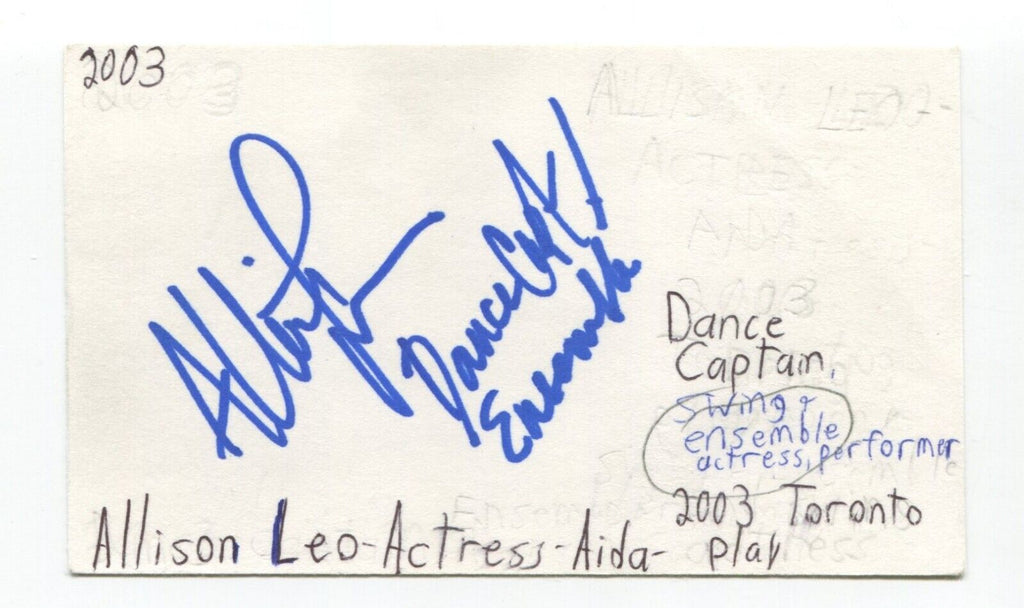 2003
Allison
Dance Capt/
Ensemble
Dance
Captain,
swing +
ensemble
actress, performer
2003 Toronto
Allison Leo-Actress-Aida- play
ALLISON LEO-
ACTRESS
AIDA
2003